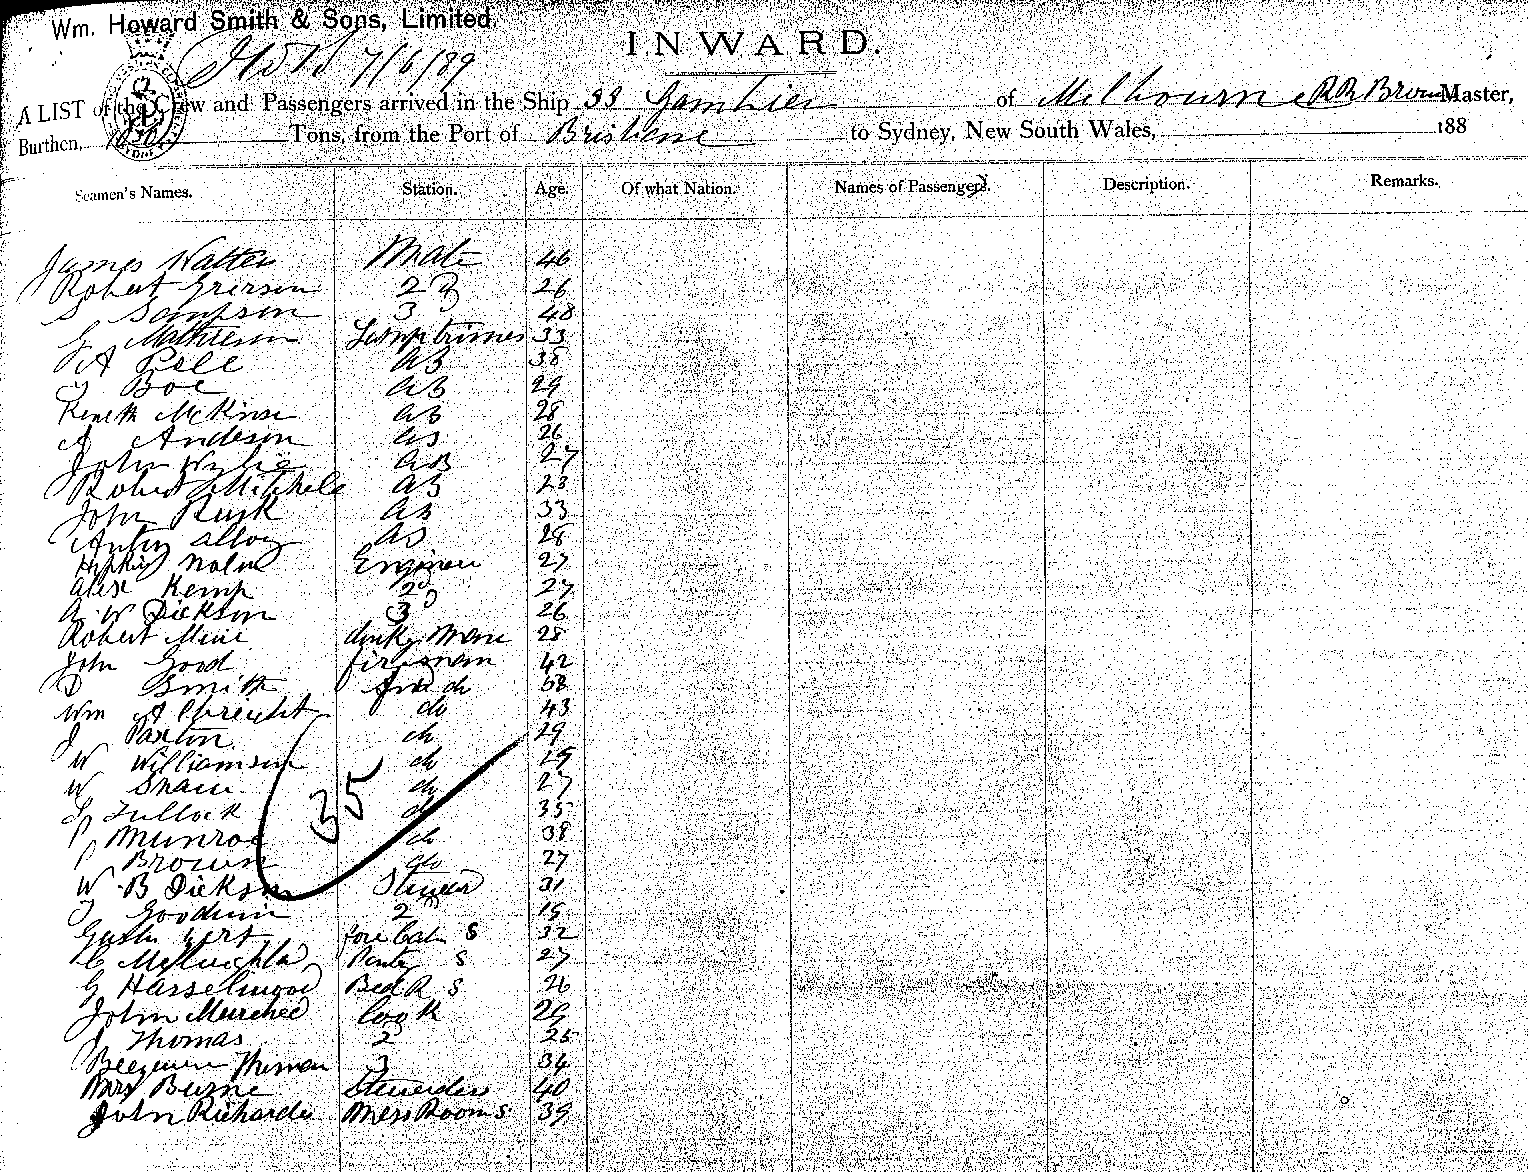 Wm. Howard Smith & Sons, Limited.
7/6/89
INWARD.
A LIST of the Crew and Passengers arrived in the Ship SS Gambier of Melbourne R B Brown Master,
Burthen, Tons, from the Port of Brisbane to Sydney, New South Wales, 188
Seamen's Names. Station. Age. Of what Nation. Names of Passengers. Description. Remarks.
James Watten Mate 46
Robert Grierson 2 26
S Sampson 3 48
G Mathieson Lamptrimer 33
A Pell AB 38
J Boe AB 29
Keneth McKinse AB 28
A Anderson AB 26
John Wylie AB 27
Robert Mitchele AB 23
John Rusk AB 33
AB 28
Nolan Engineer 27
Alex Kemp 2 27
A. W Dickson 3 26
Robert Mure donkeyman 28
John Good fireman 42
D Smith do 38
Wm Albreicht do 43
J Paxton do 29
W Williamson do 29
W Shaw do 27
Tullock do 35
P Munroe do 38
P Brown do 27
35
W B Dickson Steward 31
J Goodwin 2 19
fore Cabin S 32
C Pantry S 27
G Hasselwood Bed R S 26
John Cook 29
J Thomas 2 25
3 34
Mrs Burne Stewardess 40
John Richards Mess Room S 39